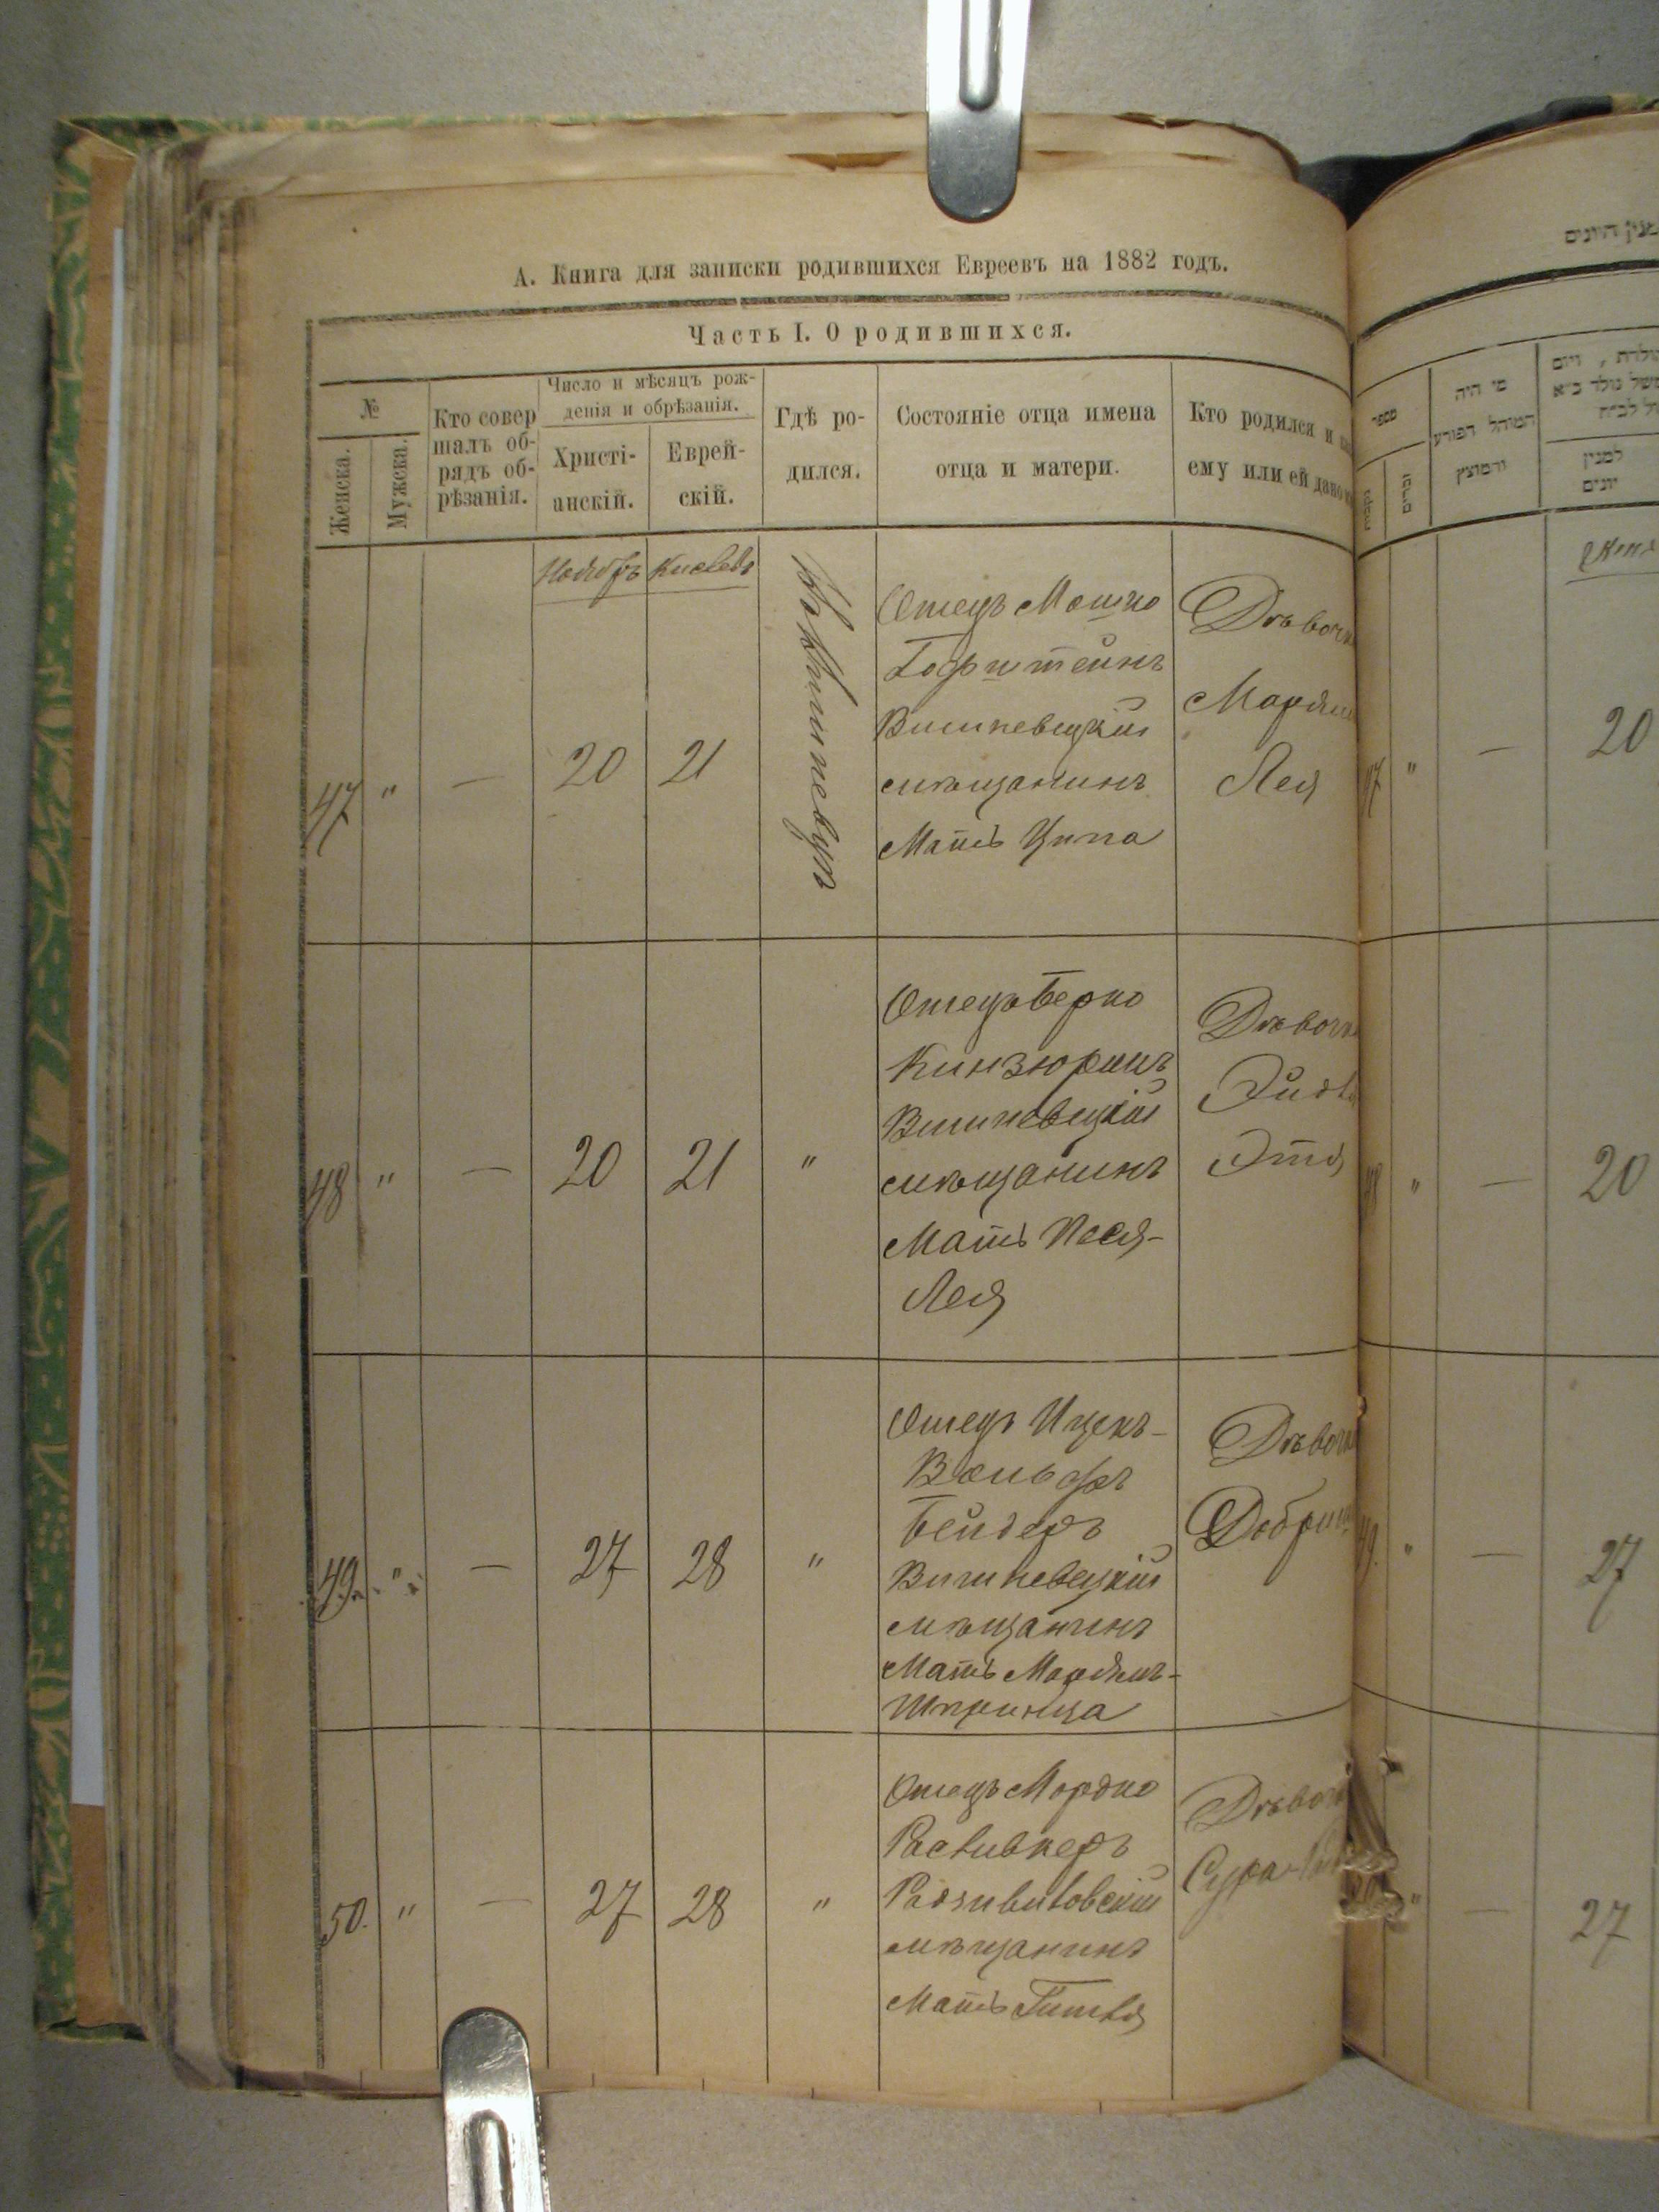 А. Книга для записки родившихся Евреевъ на 1882 годъ.
Часть I. О родившихся.
№
Женска.
Мужска.
Кто совер
шалъ об-
рядъ об-
рѣзанія.
Число и мѣсяцъ рож-
денія и обрѣзанія.
Христі-
анскій.
Еврей-
скій.
Гдѣ ро-
дился.
Состояніе отца имена
отца и матери.
Кто родился и
ему или ей дано
Ноябрь Кислевъ
47 " — 20 21
Въ Вишневцѣ
Отецъ Мошко
Гофштейнъ
Вишневецкій
мѣщанинъ
Мать Ципа
Дѣвочка
Марьям
Лея
48 " — 20 21 "
Отецъ Берко
Кинзюрикъ
Вишневецкій
мѣщанинъ
Мать Песя-
Лея
Дѣвочка
Эйдля
Этя
49. " — 27 28 "
Отецъ Ицекъ-
Вольфъ
Бейдеръ
Вишневецкій
мѣщанинъ
Мать Марьямъ-
Шпринца
Дѣвочка
Добриш
50. " — 27 28 "
Отецъ Мордко
Радзивиловскій
мѣщанинъ
Мать Гитля
Дѣвоч
Сура-
מספר
מי היה
המוהל הפורע
והמוצץ
למנין
יונים
47 " — 20
48 " — 20
49. " — 27
" — 27